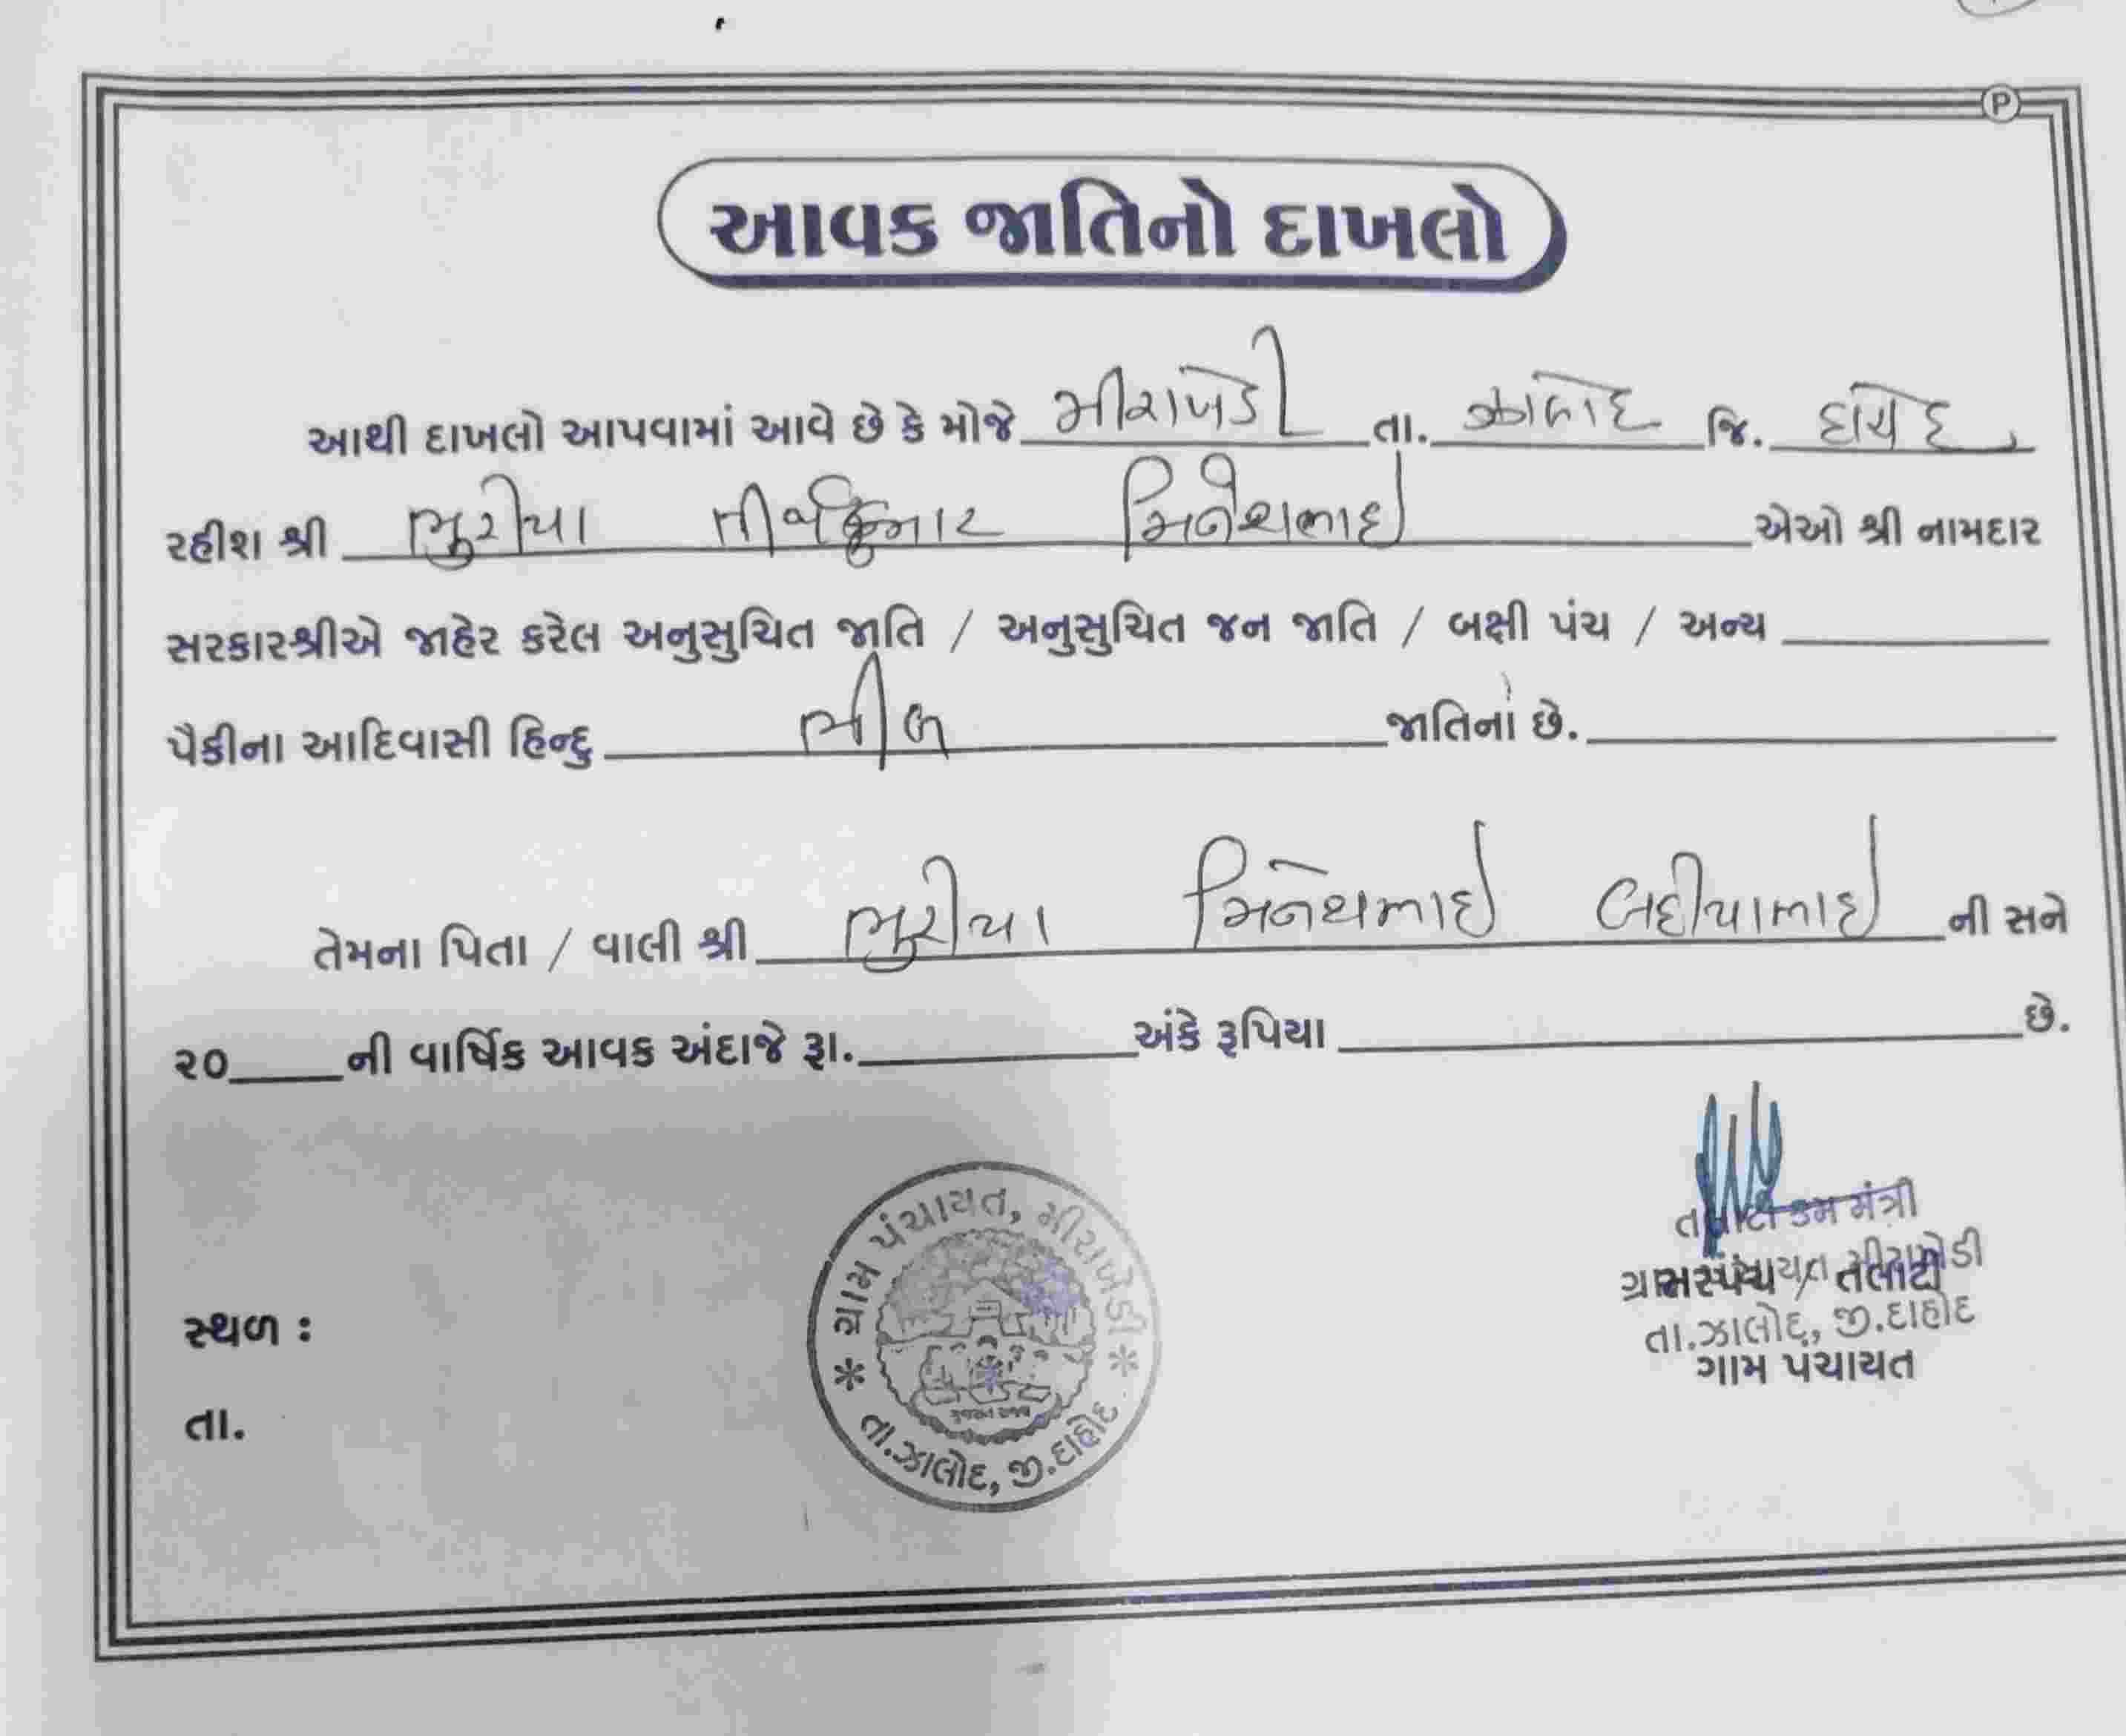 P
આવક જાતિનો દાખલો
આથી દાખલો આપવામાં આવે છે કે મોજે મીરાખેડી તા. ઝાલોદ જિ. દાહોદ
રહીશ શ્રી ભુરીયા તીર્થકુમાર મિનેશભાઈ એઓ શ્રી નામદાર
સરકારશ્રીએ જાહેર કરેલ અનુસુચિત જાતિ / અનુસુચિત જન જાતિ / બક્ષી પંચ / અન્ય
પૈકીના આદિવાસી હિન્દુ ભીલ જાતિનાં છે.
તેમના પિતા / વાલી શ્રી ભુરીયા મિનેશભાઈ બદીયાભાઈ ની સને
૨૦ ની વાર્ષિક આવક અંદાજે રૂા. અંકે રૂપિયા છે.
તલાટી કમ મંત્રી
ગ્રામ પંચાયત મીરાખેડી
સરપંચ / તલાટી
તા.ઝાલોદ, જી.દાહોદ
ગામ પચાયત
સ્થળ :
તા.
ગ્રામ પંચાયત, મીરાખેડી
તા.ઝાલોદ, જી.દાહોદ